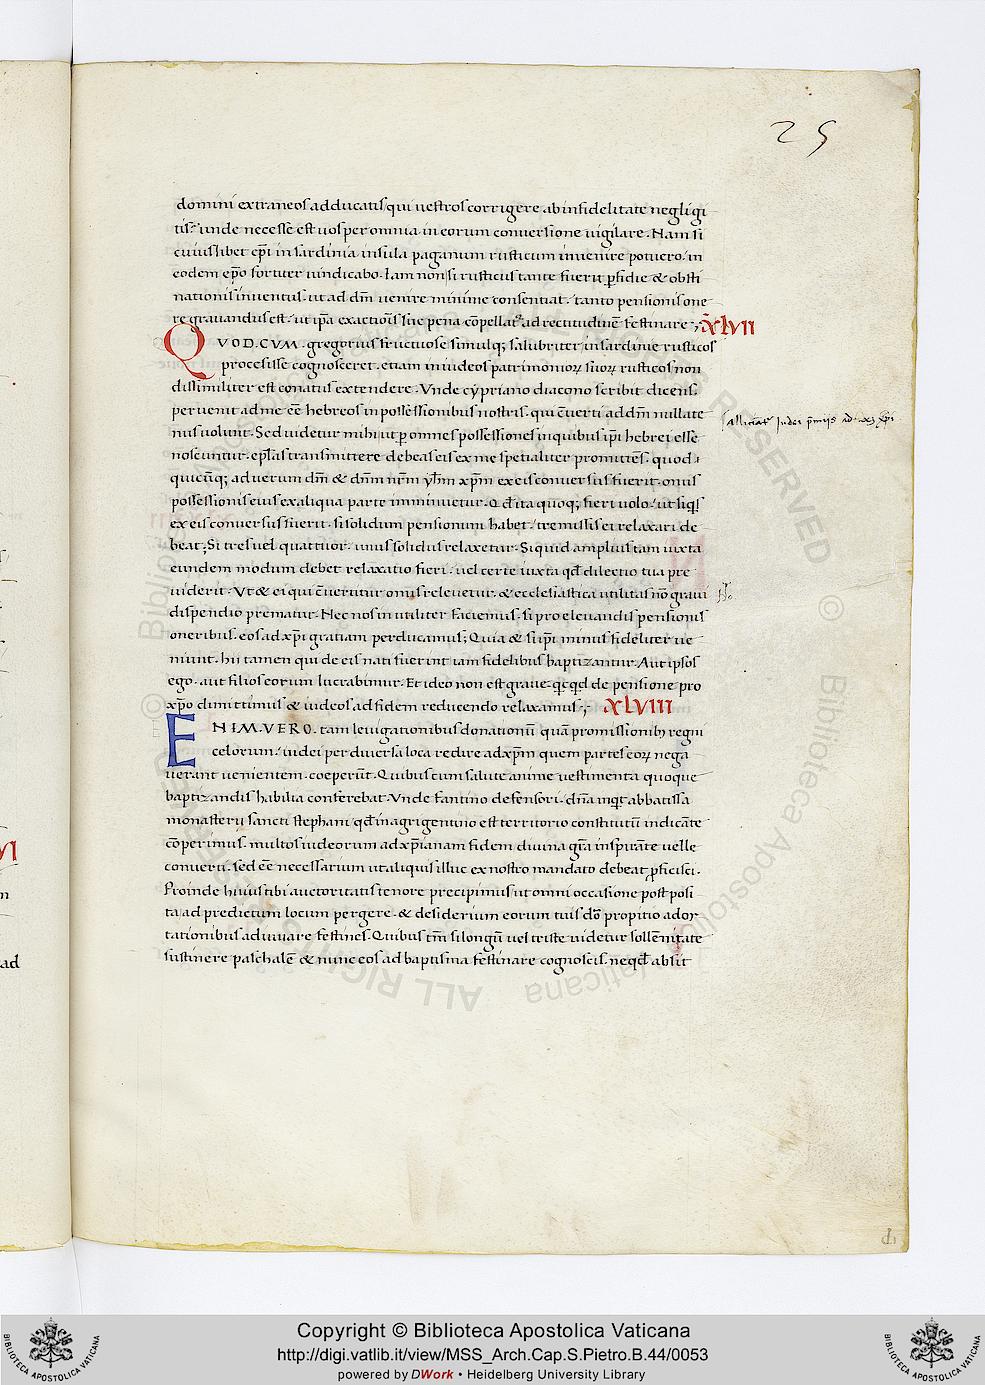 25
domini extraneos adducatis, qui uestros corrigere ab infidelitate negligi
tis? unde necesse est uos per omnia in eorum conuersione uigilare. Nam si
cuiuslibet ep̅i in sardinia insula paganum rusticum inuenire potuero, in
eodem ep̅o fortiter uindicabo. Iam non si rusticus tante fuerit ꝑfidie & obsti
nationis inuentus, ut ad dm̅ uenire minime consentiat, tanto pensionis one
re grauandus est, ut ip̅a exactiōis sue pena cōpellat᷑ ad rectitudinē festinare; XLVII
QVOD. CVM. gregorius fructuose simulq; salubriter in sardinie rusticos
processisse cognosceret. etiam in iudeos patrimonioꝝ suoꝝ rusticos non
dissimiliter est conatus extendere. Vnde cypriano diacono scribit dicens.
peruenit ad me eē hebreos in possessionibus nostris. qui cōuerti ad dm̅ nullate
nus uolunt. Sed uidetur mihi ut ꝑ omnes possessiones in quibus ip̅i hebrei esse
noscuntur. ep̅las transmittere debeas eis ex me spetialiter promittēs. quod
quicūq; ad uerum dm̅ & dn̅m nr̅m yh̅m xp̅m ex eis conuersus fuerit. onus
possessionis eius ex aliqua parte imminuetur. Qd̅ ita quoq; fieri uolo. ut siqs
ex eis conuersus fuerit. si solidum pensionum habet, tremissis ei relaxari de
beat; Si tres uel quattuor, unus solidus relaxetur. Si quid amplius tam iuxta
eundem modum debet relaxatio fieri. uel certe iuxta qd̅ dilectio tua pre
uiderit. Vt & ei qui cōuertitur onus releuetur. & ecclesiastica utilitas nō graui
dispendio prematur. Nec nos inutiliter facimus. si pro eleuandis pensionis
oneribus. eos ad xp̅i gratiam perducamus; Quia & si ip̅i minus fideliter ue
niunt. hii tamen qui de eis nati fuerint iam fidelibus baptizantur. Aut ipsos
ego. aut filios eorum lucrabimur. Et ideo non est graue. qcqd de pensione pro
xp̅o dimittimus & iudeos ad fidem reducendo relaxamus; XLVIII
ENIM. VERO. tam leuigationibus donationū quā promissionib; regni
celorum. iudei per diuersa loca redire ad xp̅m quem partes eoꝝ nega
uerant uenientem. coeperūt. Quibus cum salute anime uestimenta quoque
baptizandis habilia conferebat. Vnde fantino defensori. dn̅a inqt abbatissa
monasterii sancti stephani qd̅ in agrigentino est territorio constitutū indicāte
cōperimus. multos iudeorum ad xp̅ianam fidem diuina gr̅a inspirāte uelle
conuerti. sed eē necessarium ut aliquis illuc ex nostro mandato debeat ꝓficisci.
Proinde huius tibi auctoritatis tenore precipimus ut omni occasione postposi
ta ad predictum locum pergere. & desiderium eorum tuis dō propitio ador
tationibus adiuuare festines. Quibus tm̅ si longū uel triste uidetur sollēnitate
sustinere paschalē & nunc eos ad baptisma festinare cognoscis. neqd̅ absit
VI
n
ad
Copyright © Biblioteca Apostolica Vaticana
http://digi.vatlib.it/view/MSS_Arch.Cap.S.Pietro.B.44/0053
powered by DWork • Heidelberg University Library
BIBLIOTECA APOSTOLICA VATICANA
BIBLIOTECA APOSTOLICA VATICANA